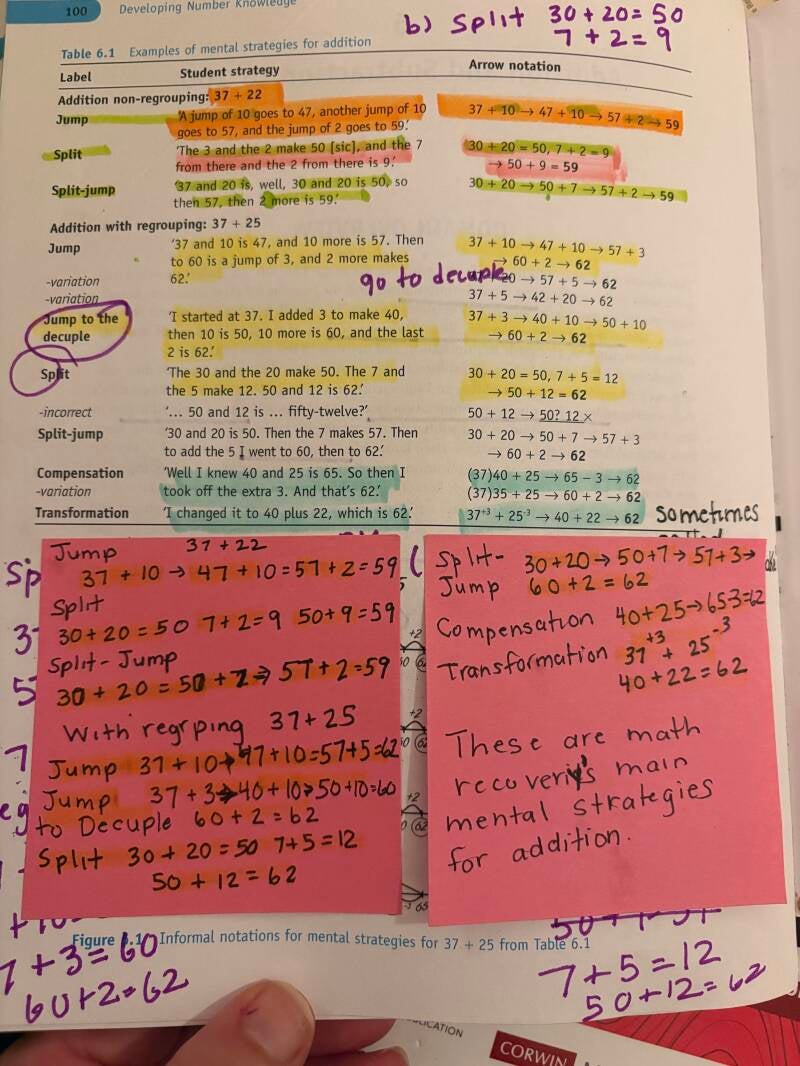 100 Developing Number Knowledge
b) Split 30 + 20 = 50
7 + 2 = 9
Table 6.1 Examples of mental strategies for addition
Label Student strategy Arrow notation
Addition non-regrouping: 37 + 22
Jump 'A jump of 10 goes to 47, another jump of 10 37 + 10 → 47 + 10 → 57 + 2 → 59
goes to 57, and the jump of 2 goes to 59.'
Split 'The 3 and the 2 make 50 [sic], and the 7 30 + 20 = 50, 7 + 2 = 9
from there and the 2 from there is 9.' → 50 + 9 = 59
Split-jump '37 and 20 is, well, 30 and 20 is 50, so 30 + 20 → 50 + 7 → 57 + 2 → 59
then 57, then 2 more is 59.'
Addition with regrouping: 37 + 25
Jump '37 and 10 is 47, and 10 more is 57. Then 37 + 10 → 47 + 10 → 57 + 3
to 60 is a jump of 3, and 2 more makes → 60 + 2 → 62
-variation 62.' go to decuple 20 → 57 + 5 → 62
-variation 37 + 5 → 42 + 20 → 62
Jump to the 'I started at 37. I added 3 to make 40, 37 + 3 → 40 + 10 → 50 + 10
decuple then 10 is 50, 10 more is 60, and the last → 60 + 2 → 62
2 is 62.'
Split 'The 30 and the 20 make 50. The 7 and 30 + 20 = 50, 7 + 5 = 12
the 5 make 12. 50 and 12 is 62.' → 50 + 12 = 62
-incorrect '... 50 and 12 is ... fifty-twelve?' 50 + 12 → 50? 12 ×
Split-jump '30 and 20 is 50. Then the 7 makes 57. Then 30 + 20 → 50 + 7 → 57 + 3
to add the 5 I went to 60, then to 62.' → 60 + 2 → 62
Compensation 'Well I knew 40 and 25 is 65. So then I (37)40 + 25 → 65 − 3 → 62
-variation took off the extra 3. And that's 62.' (37)35 + 25 → 60 + 2 → 62
Transformation 'I changed it to 40 plus 22, which is 62.' 37+3 + 25-3 → 40 + 22 → 62
sometimes
Jump 37 + 22
37 + 10 → 47 + 10 = 57 + 2 = 59
Split
30 + 20 = 50 7 + 2 = 9 50 + 9 = 59
Split-Jump
30 + 20 = 50 + 7 → 57 + 2 = 59
With regrping 37 + 25
Jump 37 + 10 → 47 + 10 = 57 + 5 = 62
Jump 37 + 3 → 40 + 10 → 50 + 10 = 60
to Decuple 60 + 2 = 62
Split 30 + 20 = 50 7 + 5 = 12
50 + 12 = 62
Split- 30 + 20 → 50 + 7 → 57 + 3 →
Jump 60 + 2 = 62
Compensation 40 + 25 → 65-3 = 62
Transformation 37+3 + 25-3
40 + 22 = 62
These are math
recovery's main
mental strategies
for addition.
Figure 6.1 Informal notations for mental strategies for 37 + 25 from Table 6.1
7 + 3 = 60
60 + 2 = 62
7 + 5 = 12
50 + 12 = 62
CORWIN